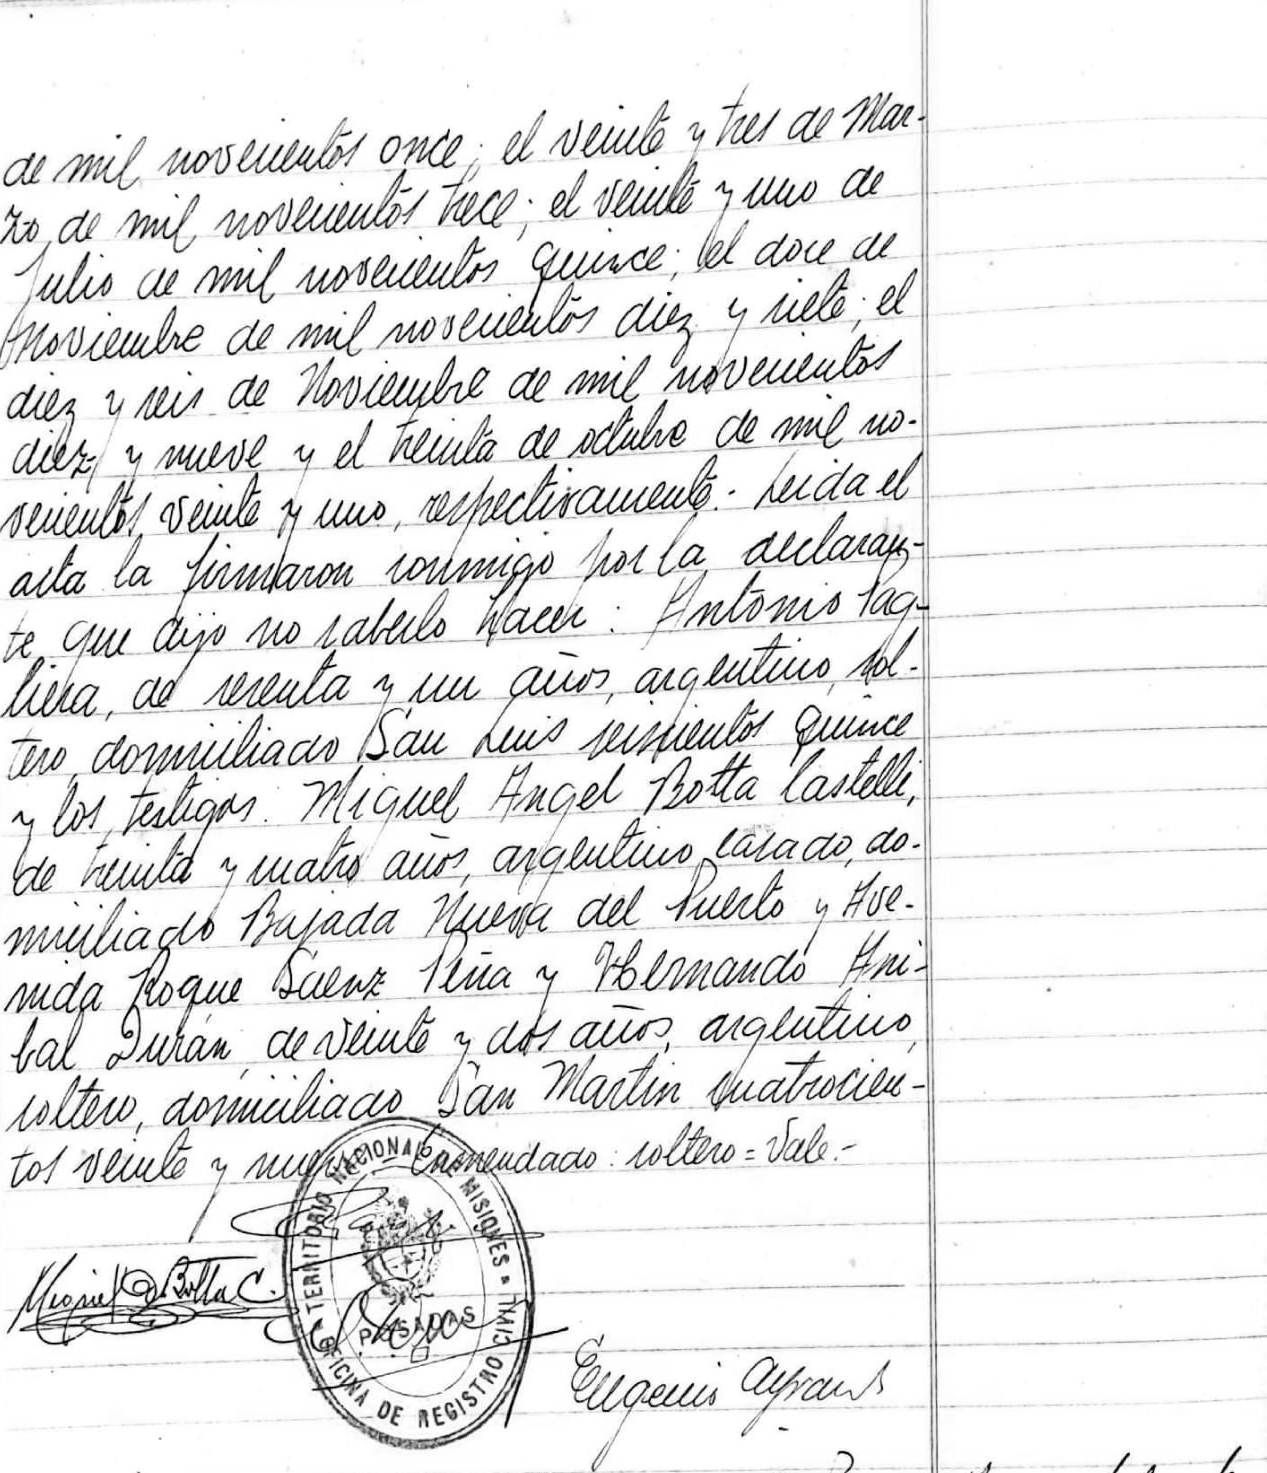 de mil novecientos once; el veinte y tres de Mar-
zo de mil novecientos trece; el veinte y uno de
Julio de mil novecientos quince; el doce de
Noviembre de mil novecientos diez y siete; el
diez y seis de Noviembre de mil novecientos
diez y nueve y el treinta de octubre de mil no-
vecientos veinte y uno, respectivamente.- Leida el
acta la firmaron conmigo por la declaran-
te que dijo no saberlo hacer: Antonio Pag-
liera, de sesenta y un años, argentino, sol-
tero, domiciliado San Luis seiscientos quince
y los testigos: Miguel Angel Botta Castelli,
de treinta y cuatro años, argentino, casado, do-
miciliado Bajada Nueva del Puerto y Ave-
nida Roque Saenz Peña y Hernando Ani-
bal Durán, de veinte y dos años, argentino,
soltero, domiciliado San Martin cuatrocien-
tos veinte y nueve. Enmendado: soltero = Vale.-
TERRITORIO NACIONAL DE MISIONES
Miguel A Botta C.
POSADAS
OFICINA DE REGISTRO CIVIL
Eugenio